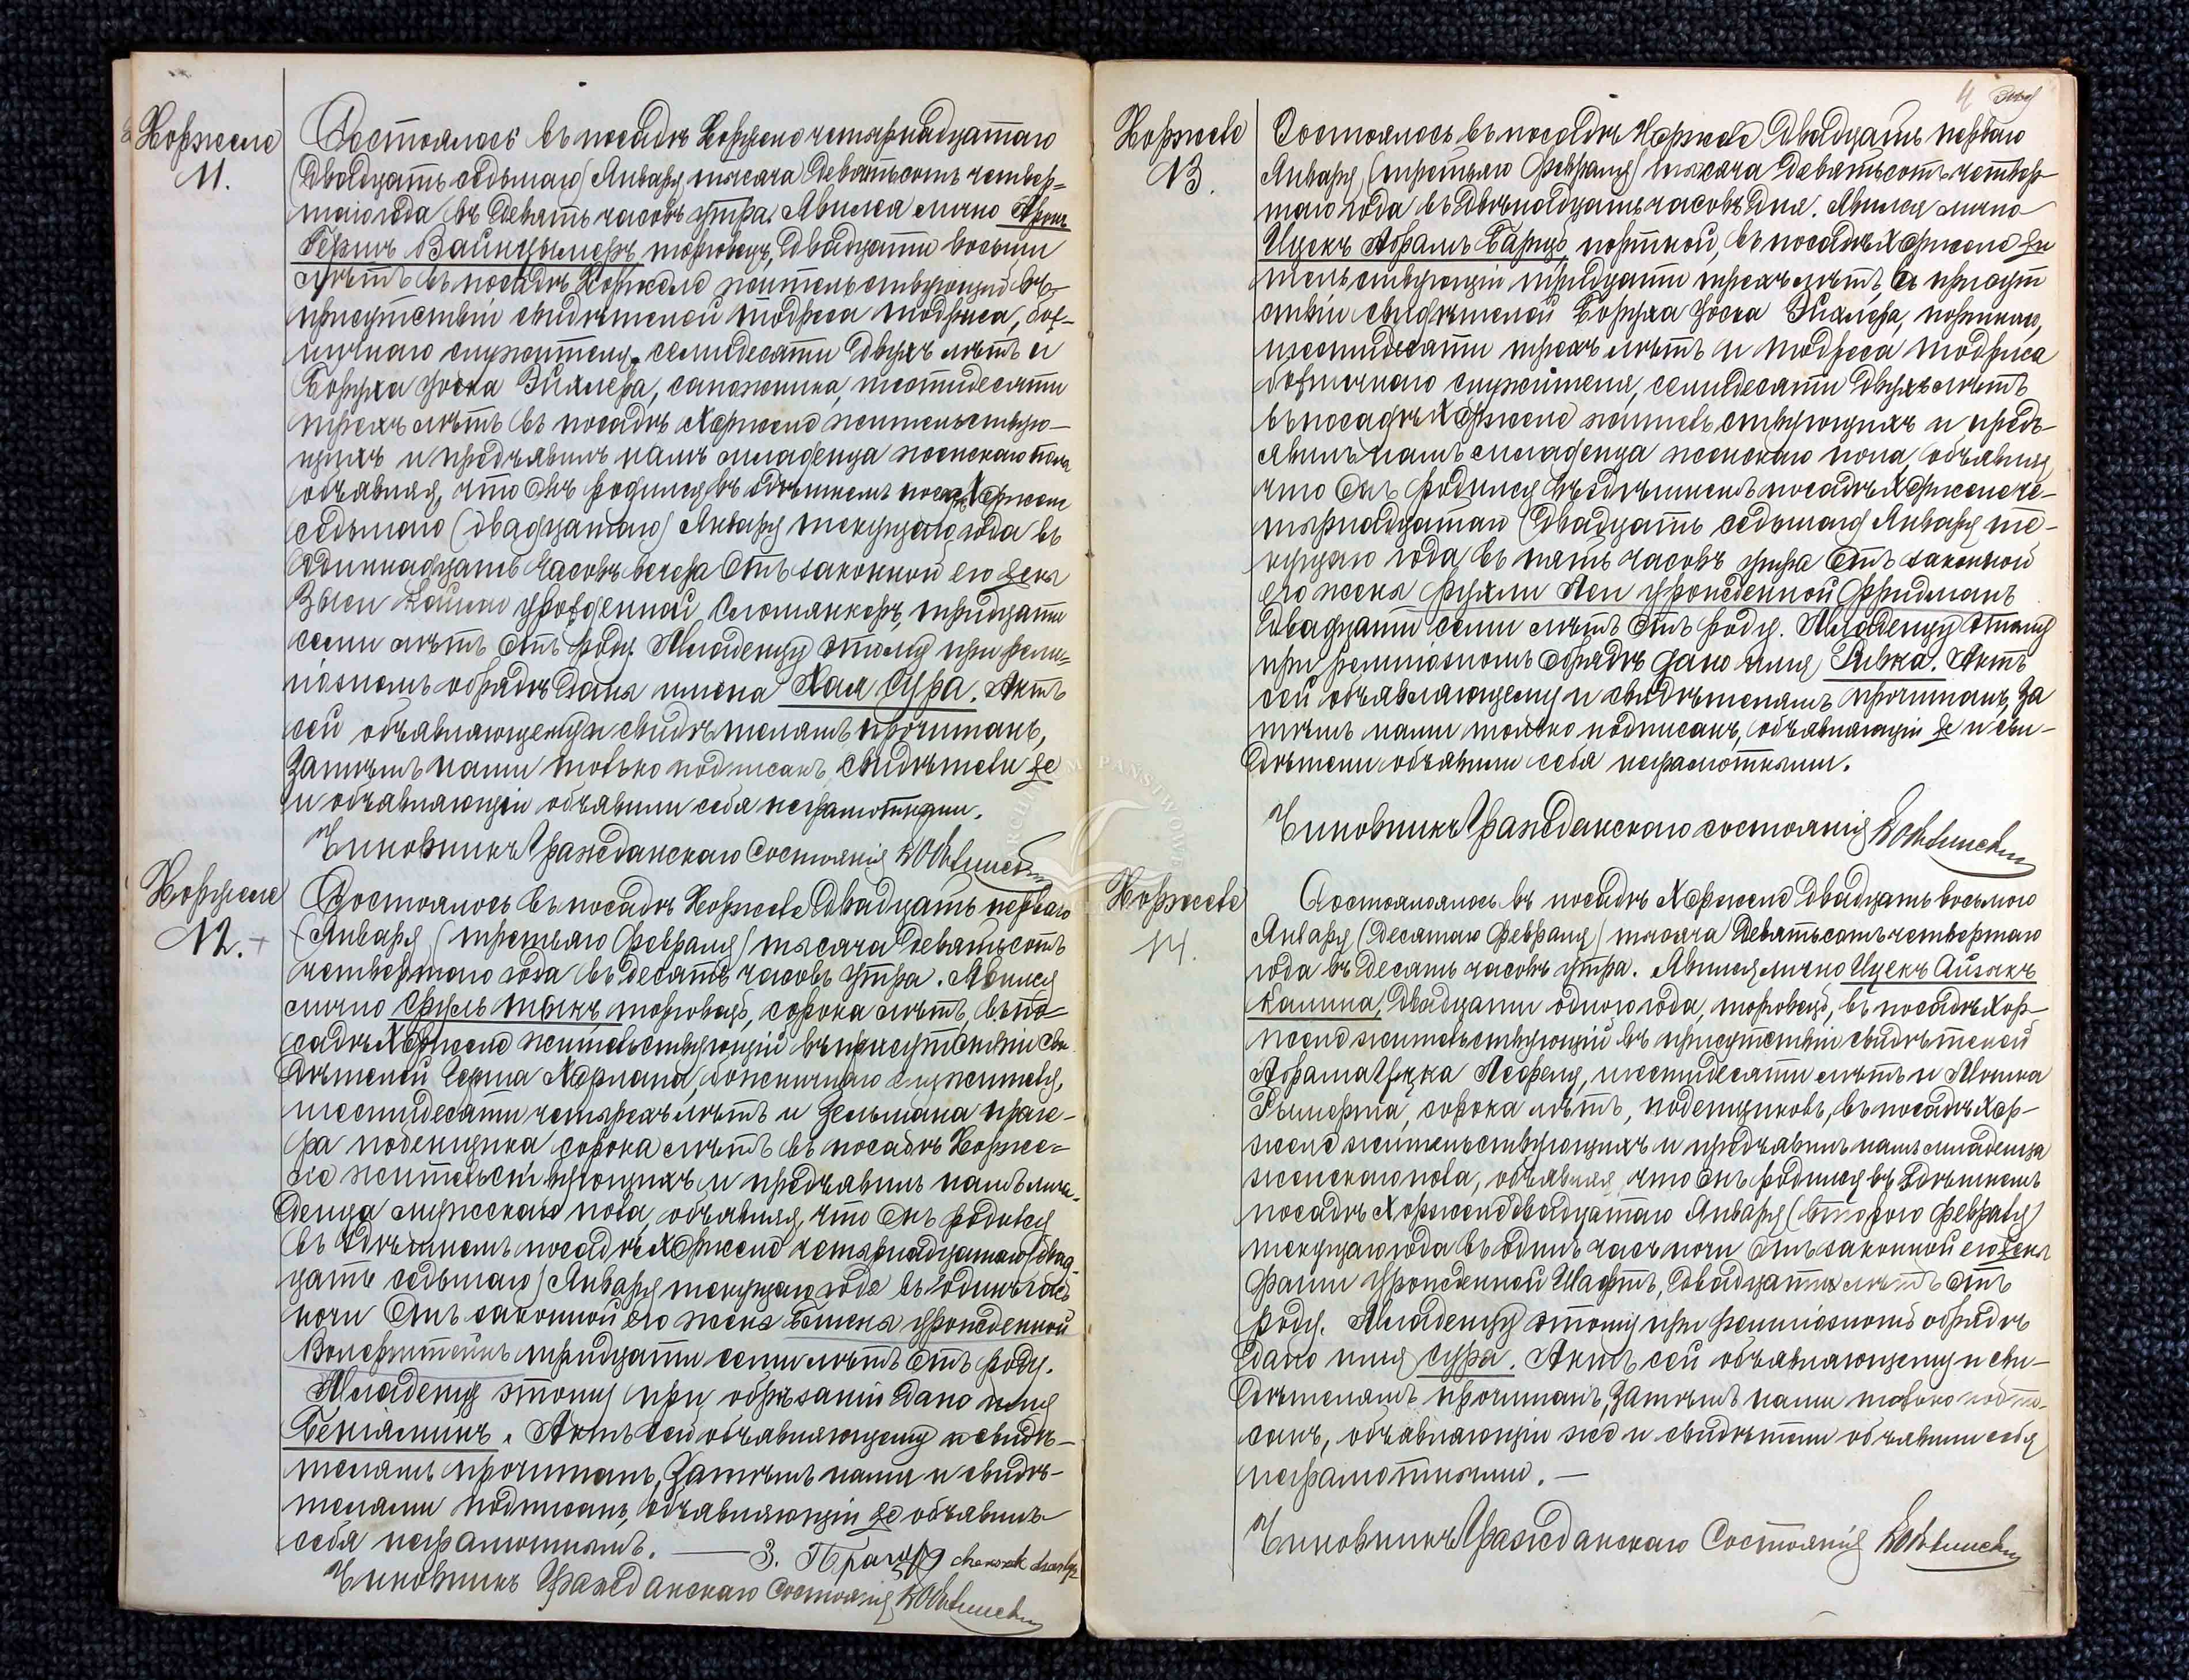 Хоржеле
11.
Состоялось въ посадѣ Хоржеле четырнадцатаго
(двадцать седьмаго) Января тысяча девятьсотъ четвер=
таго года въ девять часовъ утра. Явился лично
Гершъ Вайнцимеръ, торговецъ, двадцати восьми
лѣтъ въ посадѣ Хоржеле жительствующій въ
присутствіи свидѣтелей Тодреса Тодриса, бож-
ничнаго служителя, семидесяти двухъ лѣтъ и
Боруха Іоска Эйхлера, сапожника, шестидесяти
трехъ лѣтъ въ посадѣ Хоржеле жительствую-
щихъ и предъявилъ намъ младенца женскаго пола,
объявляя, что онъ родился въ здѣшнемъ посадѣ Хоржеле
седьмаго (двадцатаго) Января текущаго года въ
одиннадцать часовъ вечера отъ законной его жены
урожденной тридцати
семи лѣтъ отъ роду. Младенцу этому при рели=
гіозномъ обрядѣ даны имена Хая Сура. Актъ
сей объявляющему и свидѣтелямъ прочитанъ,
затѣмъ нами только подписанъ, свидѣтели же
и объявляющій объявили себя неграмотными.
Чиновникъ Гражданскаго Состоянія
Хоржеле
12.
Состоялось въ посадѣ Хоржеле двадцать перваго
Января (третьяго Февраля) тысяча девятьсотъ
четвертаго года въ десять часовъ утра. Явился
лично Сруль торговецъ, сорока лѣтъ, въ по=
садѣ Хоржеле жительствующій въ присутствіи сви
дѣтелей Герша Хермана, божничнаго служителя,
шестидесяти четырехъ лѣтъ и Зельмана Праге-
ра поденщика сорока лѣтъ въ посадѣ Хорже=
ле жительствующихъ и предъявилъ намъ мла-
денца мужескаго пола, объявляя, что онъ родился
въ здѣшнемъ посадѣ Хоржеле четырнадцатаго (двад-
цать седьмаго) Января текущаго года въ одинъ часъ
ночи отъ законной его жены урожденной
тридцати семи лѣтъ отъ роду.
Младенцу этому при обрѣзаніи дано имя
Беніяминъ. Актъ сей объявляющему и свидѣ-
телямъ прочитанъ, затѣмъ нами и свидѣ-
телями подписанъ, объявляющій же объявилъ
себя неграмотнымъ. — З. Прагеръ
Чиновникъ Гражданскаго Состоянія
4
Хоржеле
13.
Состоялось въ посадѣ Хоржеле двадцать перваго
Января (третьяго Февраля) тысяча девятьсотъ четвер-
таго года въ двѣнадцать часовъ дня. Явился лично
Ицекъ Абрамъ Барщъ, портной, въ посадѣ Хоржеле жи
тельствующій тридцати трехъ лѣтъ, въ присут
ствіи свидѣтелей Боруха Іоска Эйхлера, портнаго,
шестидесяти трехъ лѣтъ и Тодреса Тодриса
божничнаго служителя, семидесяти двухъ лѣтъ
въ посадѣ Хоржеле жительствующихъ и предъ-
явилъ намъ младенца женскаго пола, объявляя,
что онъ родился въ здѣшнемъ посадѣ Хоржеле че-
тырнадцатаго (двадцать седьмаго) Января те-
кущаго года въ пять часовъ утра отъ законной
его жены Рухли Леи урожденной Фридманъ
двадцати семи лѣтъ отъ роду. Младенцу этому
при религіозномъ обрядѣ дано имя Ривка. Актъ
сей объявляющему и свидѣтелямъ прочитанъ, за
тѣмъ нами только подписанъ, объявляющій же и сви-
дѣтели объявили себя неграмотными.
Чиновникъ Гражданскаго состоянія
Хоржеле
14.
Состоялоялось въ посадѣ Хоржеле двадцать восьмого
Января (десятаго Февраля) тысяча девятьсотъ четвертаго
года въ десять часовъ утра. Явился лично Ицекъ Айзыкъ
Калина, двадцати одного года, торговецъ, въ посадѣ Хор-
желе жительствующій въ присутствіи свидѣтелей
Абрама Ицка шестидесяти лѣтъ и Мошка
сорока лѣтъ, поденщиковъ, въ посадѣ Хор-
желе жительствующихъ и предъявилъ намъ младенца
женскаго пола, объявляя, что онъ родился въ здѣшнемъ
посадѣ Хоржеле двадцатаго Января (второго Февраля)
текущаго года въ одинъ часъ ночи отъ законной его жены
Фаги урожденной Шафтъ, двадцати лѣтъ отъ
роду. Младенцу этому при религіозномъ обрядѣ
дано имя Сура. Актъ сей объявляющему и сви-
дѣтелямъ прочитанъ, затѣмъ нами только подпи-
санъ, объявляющій же и свидѣтели объявили себя
неграмотными. —
Чиновникъ Гражданскаго Состоянія